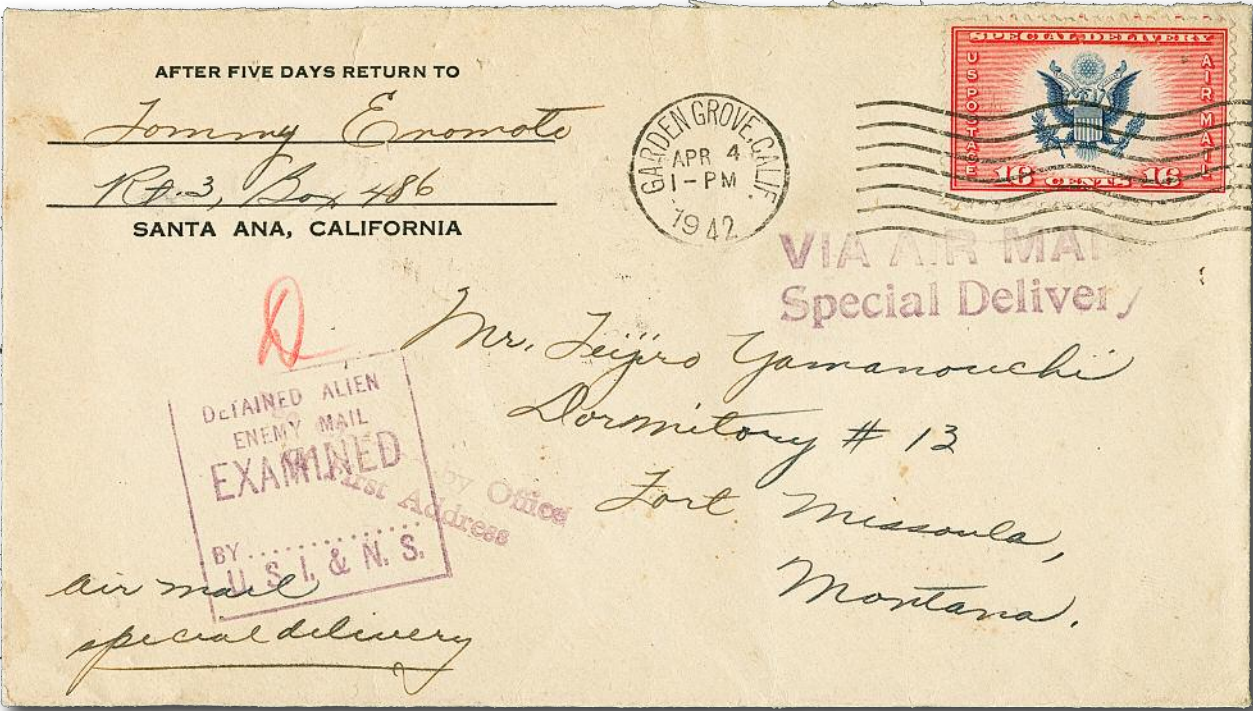 AFTER FIVE DAYS RETURN TO
Tommy Enomoto
Rt. 3, Box 486
SANTA ANA, CALIFORNIA
GARDEN GROVE, CALIF.
APR 4
1-PM
1942
SPECIAL DELIVERY
US POSTAGE
AIR MAIL
16 CENTS 16
VIA AIR MAIL
Special Delivery
D
Mr. Teijiro Yamanouchi
Dormitory # 13
Fort Missoula,
Montana.
DETAINED ALIEN
ENEMY MAIL
EXAMINED
BY..............
U. S. I. & N. S.
by Office
First Address
air mail
special delivery